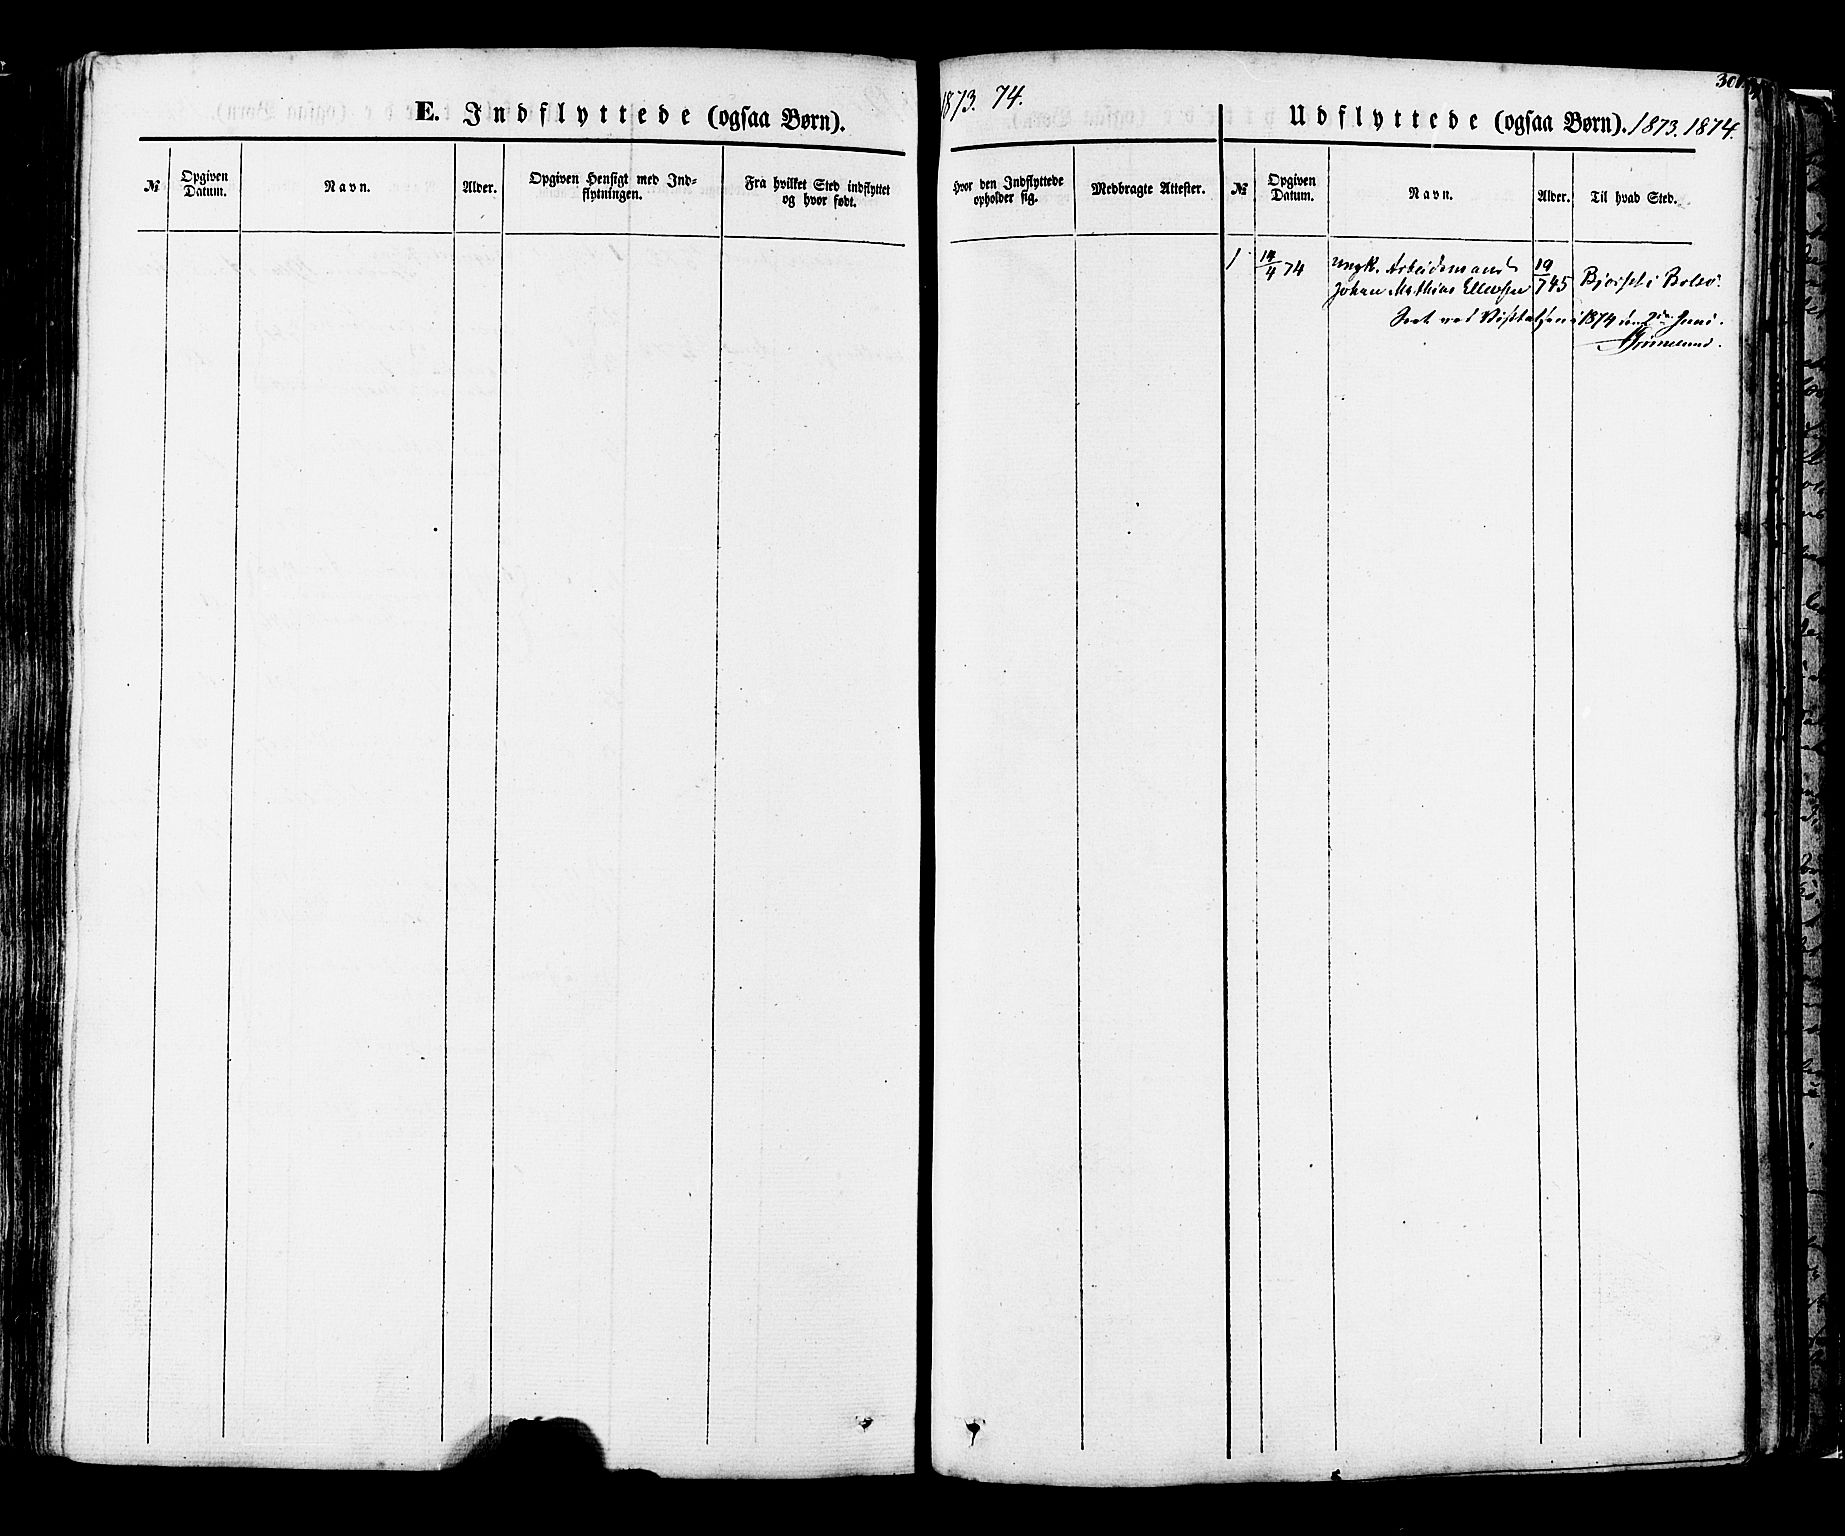 E. Indflyttede (ogsaa Børn).
№
Opgiven
Datum.
Navn.
Alder.
Opgiven Hensigt med Ind-
flytningen.
Fra hvilket Sted indflyttet
og hvor født.
1873. 74.
Udflyttede (ogsaa Børn). 1873. 1874.
Hvor den Indflyttede
opholder sig.
Medbragte Attester.
№
Opgiven
Datum.
Navn.
Alder.
Til hvad Sted.
1 14/4 74 ungk. Arbeidsmand 19/7 45 Bjørset i Bolsø.
Johan Mathias Ellevsen
Seet ved Visitatsen 1874 den 2den Juni.
Grimelund.